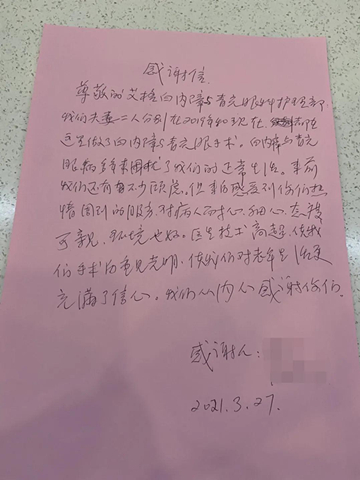 感谢信
尊敬的艾格白内障与青光眼科护理部
我们夫妻二人分别在2019年和三次在
这里做了白内障与青光眼手术。白内障与青光
眼病多年来困扰了我们的正常生活。事前
我们还有很大顾虑。但事后感受到你们热
情周到的服务，对病人耐心、细心、态度
可亲，环境也好。医生技术高超，使我
们手术后重见光明，使我们对老年生活更
充满了信心。我们从内心感谢你们。
感谢人：
2021.3.27.